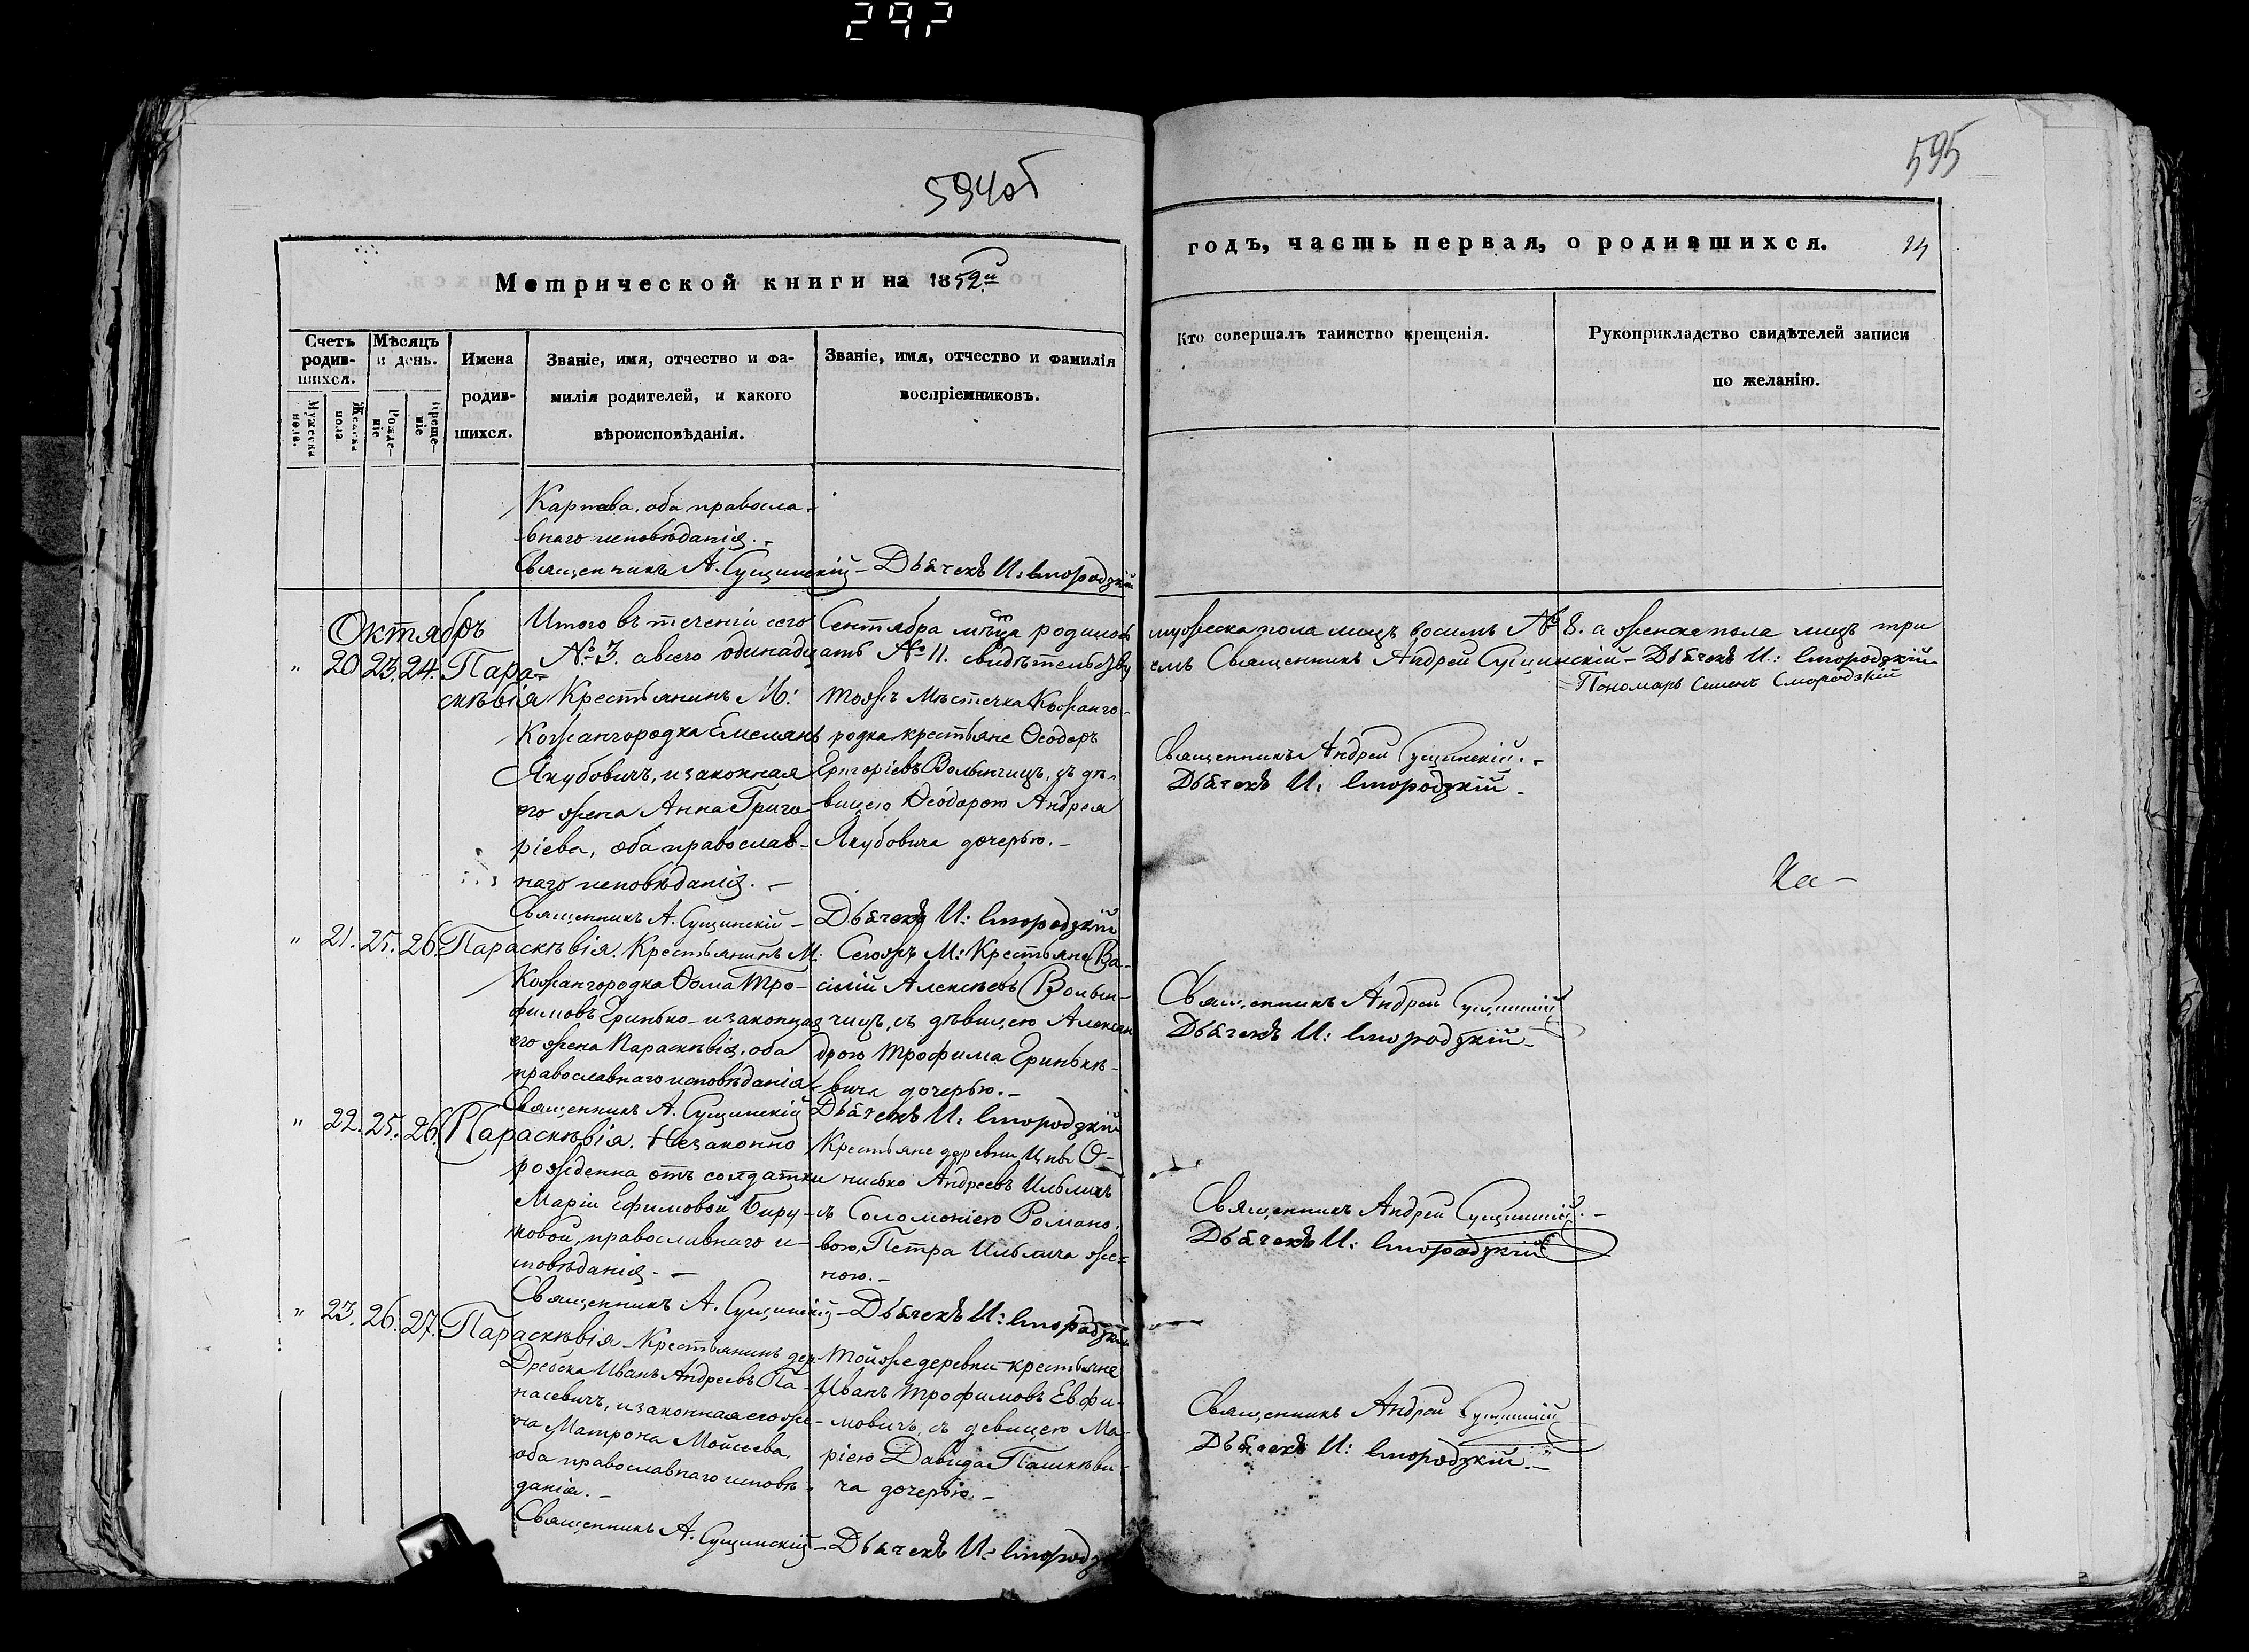 297
594об
595
Метрической книги на 1852й
годъ, часть первая, о родившихся.
Счетъ родившихся.
Мужеска пола.
Женска пола
Мѣсяцъ и день.
Рожденіе
Крещеніе
Имена родившихся.
Званіе, имя, отчество и фамилія родителей, и какого вѣроисповѣданія.
Званіе, имя, отчество и фамилія воспріемниковъ.
Кто совершалъ таинство крещенія.
Рукоприкладство свидѣтелей записи по желанію.
Карпова, оба правосла-
внаго исповѣданія. -
Священникъ А. Сущинскій - Дьячекъ И: Смородзкій
Октябрь
Итого въ теченіи сего Сентября мѣсяца родилось мужеска пола лицъ восимь № 8. а женска пола лицъ три
№ 3. а всего одинадцать № 11. свидѣтельствуемъ Священникъ Андрей Сущинскій - Дьячекъ И: Смородзкій
Пономарь Семенъ Смородзкій
" 20. 23. 24. Пара-
скѣвія
Крестьянинъ М:
Кожангородка Емельянъ
Якубовичъ, и законная
его жена Анна Григо-
ріева, оба православ-
наго исповѣданія. -
тогожъ Мѣстечка Кожанго-
родка крестьяне Ѳеодоръ
Григоріевъ Волынчицъ, зъ дѣ-
вицею Ѳеодорою Андрея
Якубовича дочерью. -
Священникъ Андрей Сущинскій. -
Дьячекъ И: Смородзкій -
Священникъ А. Сущинскій - Дьячекъ И: Смородзкій
" 21. 25. 26. Параскѣвія.
Крестьянинъ М.
Кожангородка Ѳома Тро-
фимовъ Гринько - и законная
его жена Параскѣвія, оба
православнаго исповѣданія.
Сегожъ М: Крестьяне Ва-
силій Алексѣевъ Волын-
чицъ, съ дѣвицею Алексан
дрою Трофима Гринькѣ-
вича дочерью. -
Священникъ Андрей Сущинскій
Дьячекъ И: Смородзкій -
Священникъ А. Сущинскій Дьячекъ И: Смородзкій
" 22. 25. 26. Параскѣвія.
Незаконно
рожденна отъ солдатки
Маріи Ефимовой Биру-
ковой, православнаго и-
сповѣданія. -
Крестьяне деревни Цны О-
нисько Андреевъ Ильичъ
съ Соломоніею Романо-
вою, Петра Ильича же-
ною. -
Священникъ Андрей Сущинскій. -
Дьячекъ И: Смородзкій
Священникъ А. Сущинскій - Дьячекъ И: Смородзкій
" 23. 26. 27. Параскѣвія
Крестьянинъ дер.
Дребска Иванъ Андреевъ Па-
насевичъ, и законная его же-
на Матрона Моисеева,
оба православнаго исповѣ-
данія. -
Тойже деревни крестьяне
Иванъ Трофимовъ Евфи-
мовичъ, съ девицею Ма-
ріею Давида Пашкѣви-
ча дочерью. -
Священникъ Андрей Сущинскій
Дьячекъ И: Смородзкій -
Священникъ А. Сущинскій - Дьячекъ И: Смородз